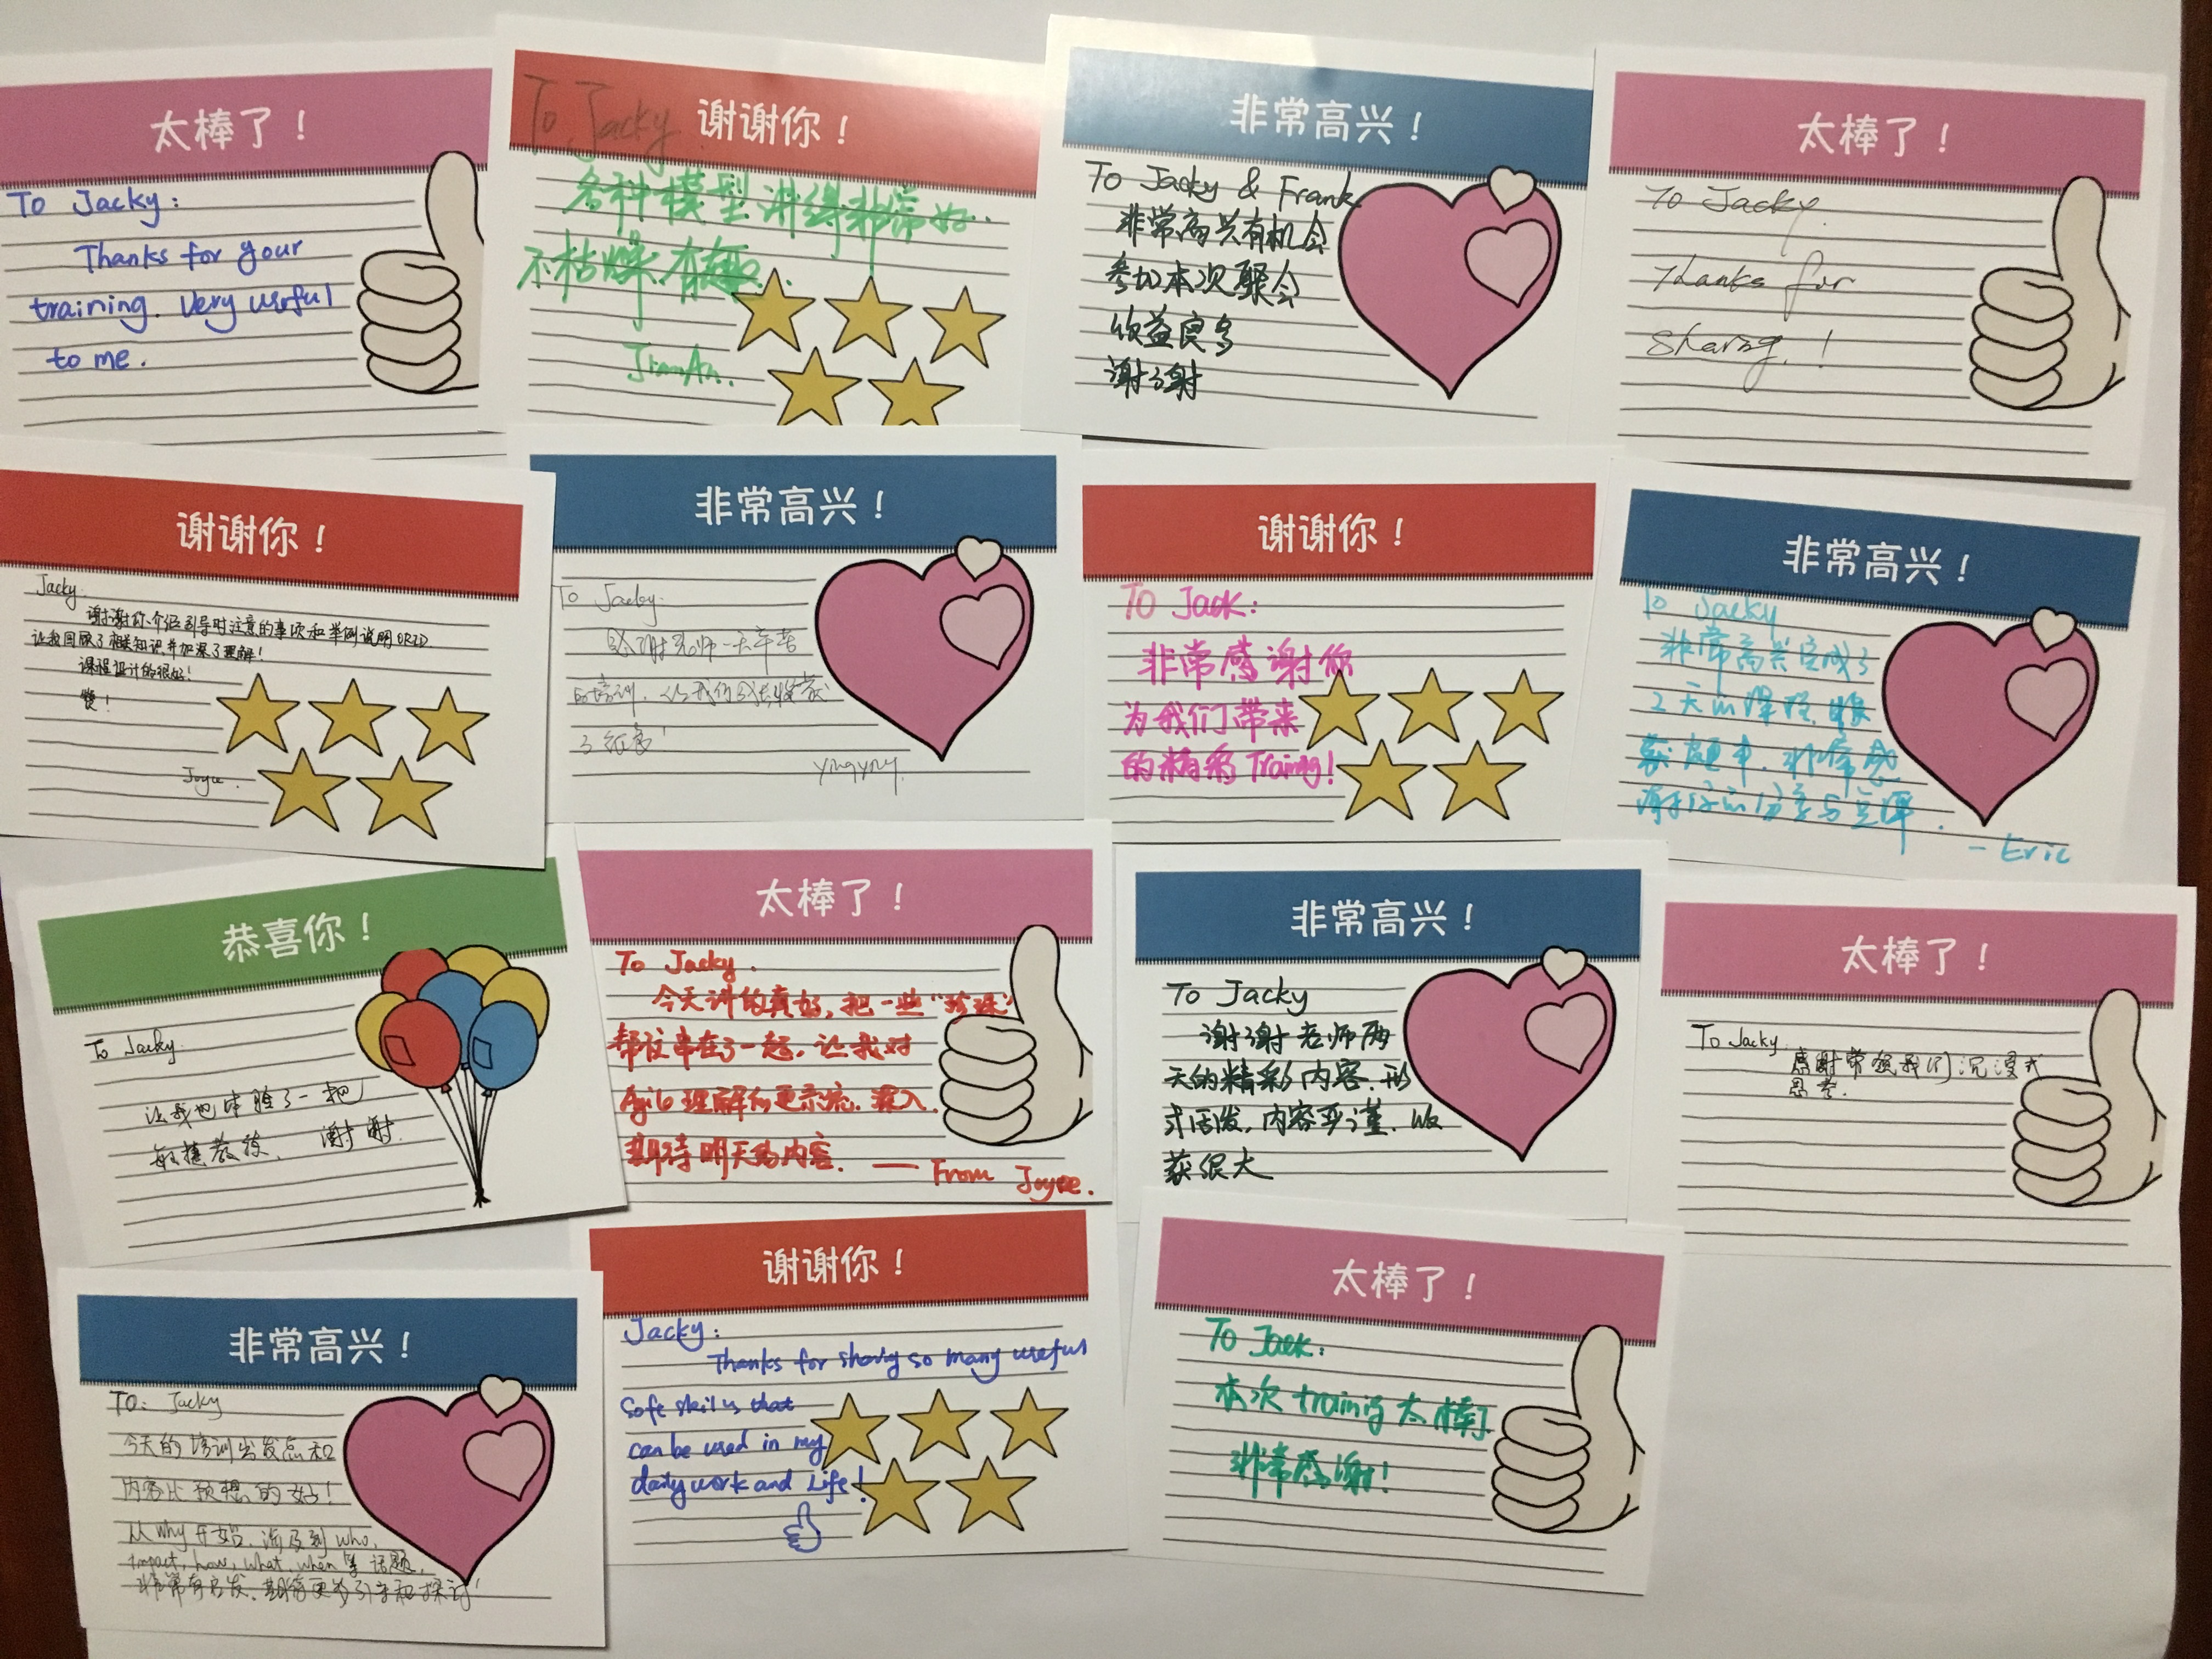 太棒了！
To Jacky:
Thanks for your
training. Very useful
to me.
谢谢你！
To Jacky
各种模型讲得非常好
不枯燥 有趣
非常高兴！
To Jacky & Frank
非常高兴有机会
参加本次聚会
收益良多
谢谢
太棒了！
To Jacky
Thanks for
Sharing.!
谢谢你！
Jacky
谢谢你介绍引导时注意的事项和举例说明ORID
让我回顾了相关知识并加深了理解!
课程设计的很好!
赞!
Joyce
非常高兴！
To Jacky
感谢老师一天辛苦
的培训,让我们成长收获
yingying
谢谢你！
To Jack:
非常感谢你
为我们带来
的精彩Traing!
非常高兴！
To Jacky
非常高兴完成了
2天的课程,收
获颇丰.非常感
谢你的分享与点评.
- Eric
恭喜你！
To Jacky
让我也体验了一把
敏捷教练. 谢谢
太棒了！
To Jacky.
今天讲的真好,把一些"珍珠"
帮设串在了一起,让我对
Agile理解的更系统.深入.
期待明天的内容. — From Joyce.
非常高兴！
To Jacky
谢谢老师两
天的精彩内容.形
式活发,内容严谨.收
获很大
太棒了！
To Jacky
感谢带领我们沉浸式
思考.
非常高兴！
TO: Jacky
今天的培训出发点和
内容比预想的好!
从why开始,涉及到who,
impact, how, what, when等话题,
非常有启发.期待更多引导和探讨!
谢谢你！
Jacky:
Thanks for sharing so many useful
Soft skills that
can be used in my
daily work and Life!
太棒了！
To Jack:
本次training太棒了
非常感谢!